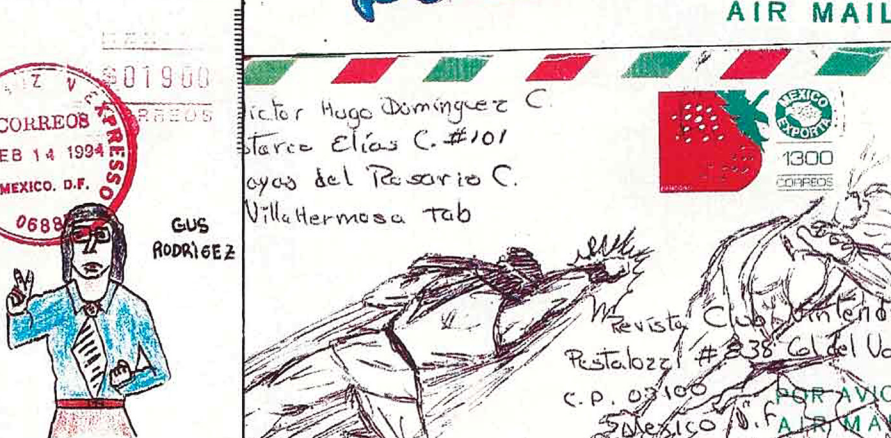 AIR MAIL
$01900
CORREOS
EXPRESSO
CORREOS
EB 14 1994
MEXICO. D.F.
0688
GUS
RODRIGEZ
ictor Hugo Dominguez C.
Elías C. #101
ayas del Rosario C.
VillaHermosa Tab
MEXICO
EXPORTA
1300
CORREOS
Revista Club Nintend
Pestalozzi #838 Col del Va
C.P. 03100
Mexico D.F.
POR AVIO
AIR MA